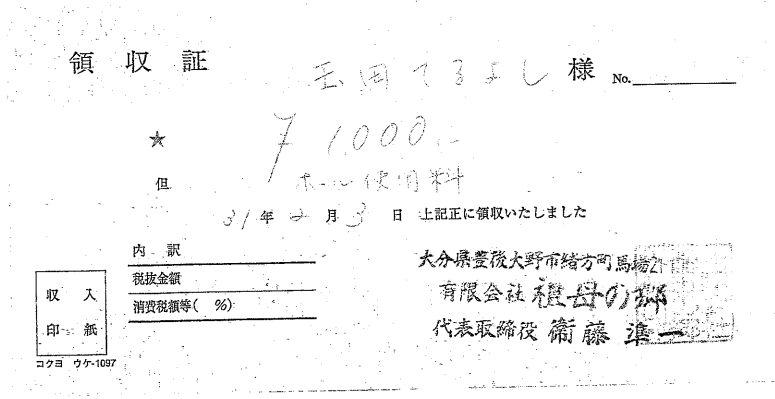 領収証
玉田てるよし 様 No.
★ ¥1,000.-
但 ホール使用料
31年2月3日 上記正に領収いたしました
内訳
税抜金額
消費税額等( %)
収入
印紙
コクヨ ウケ-1097
大分県豊後大野市緒方町馬場21
有限会社 祖母の郷
代表取締役 衛藤準一